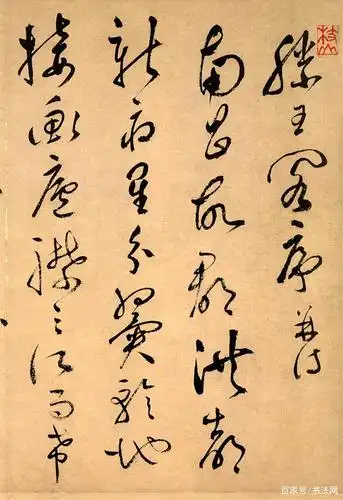 滕王閣序 并詩
南昌故郡洪都
新府星分翼軫地
接衡廬襟三江而帶
百家号/书法网